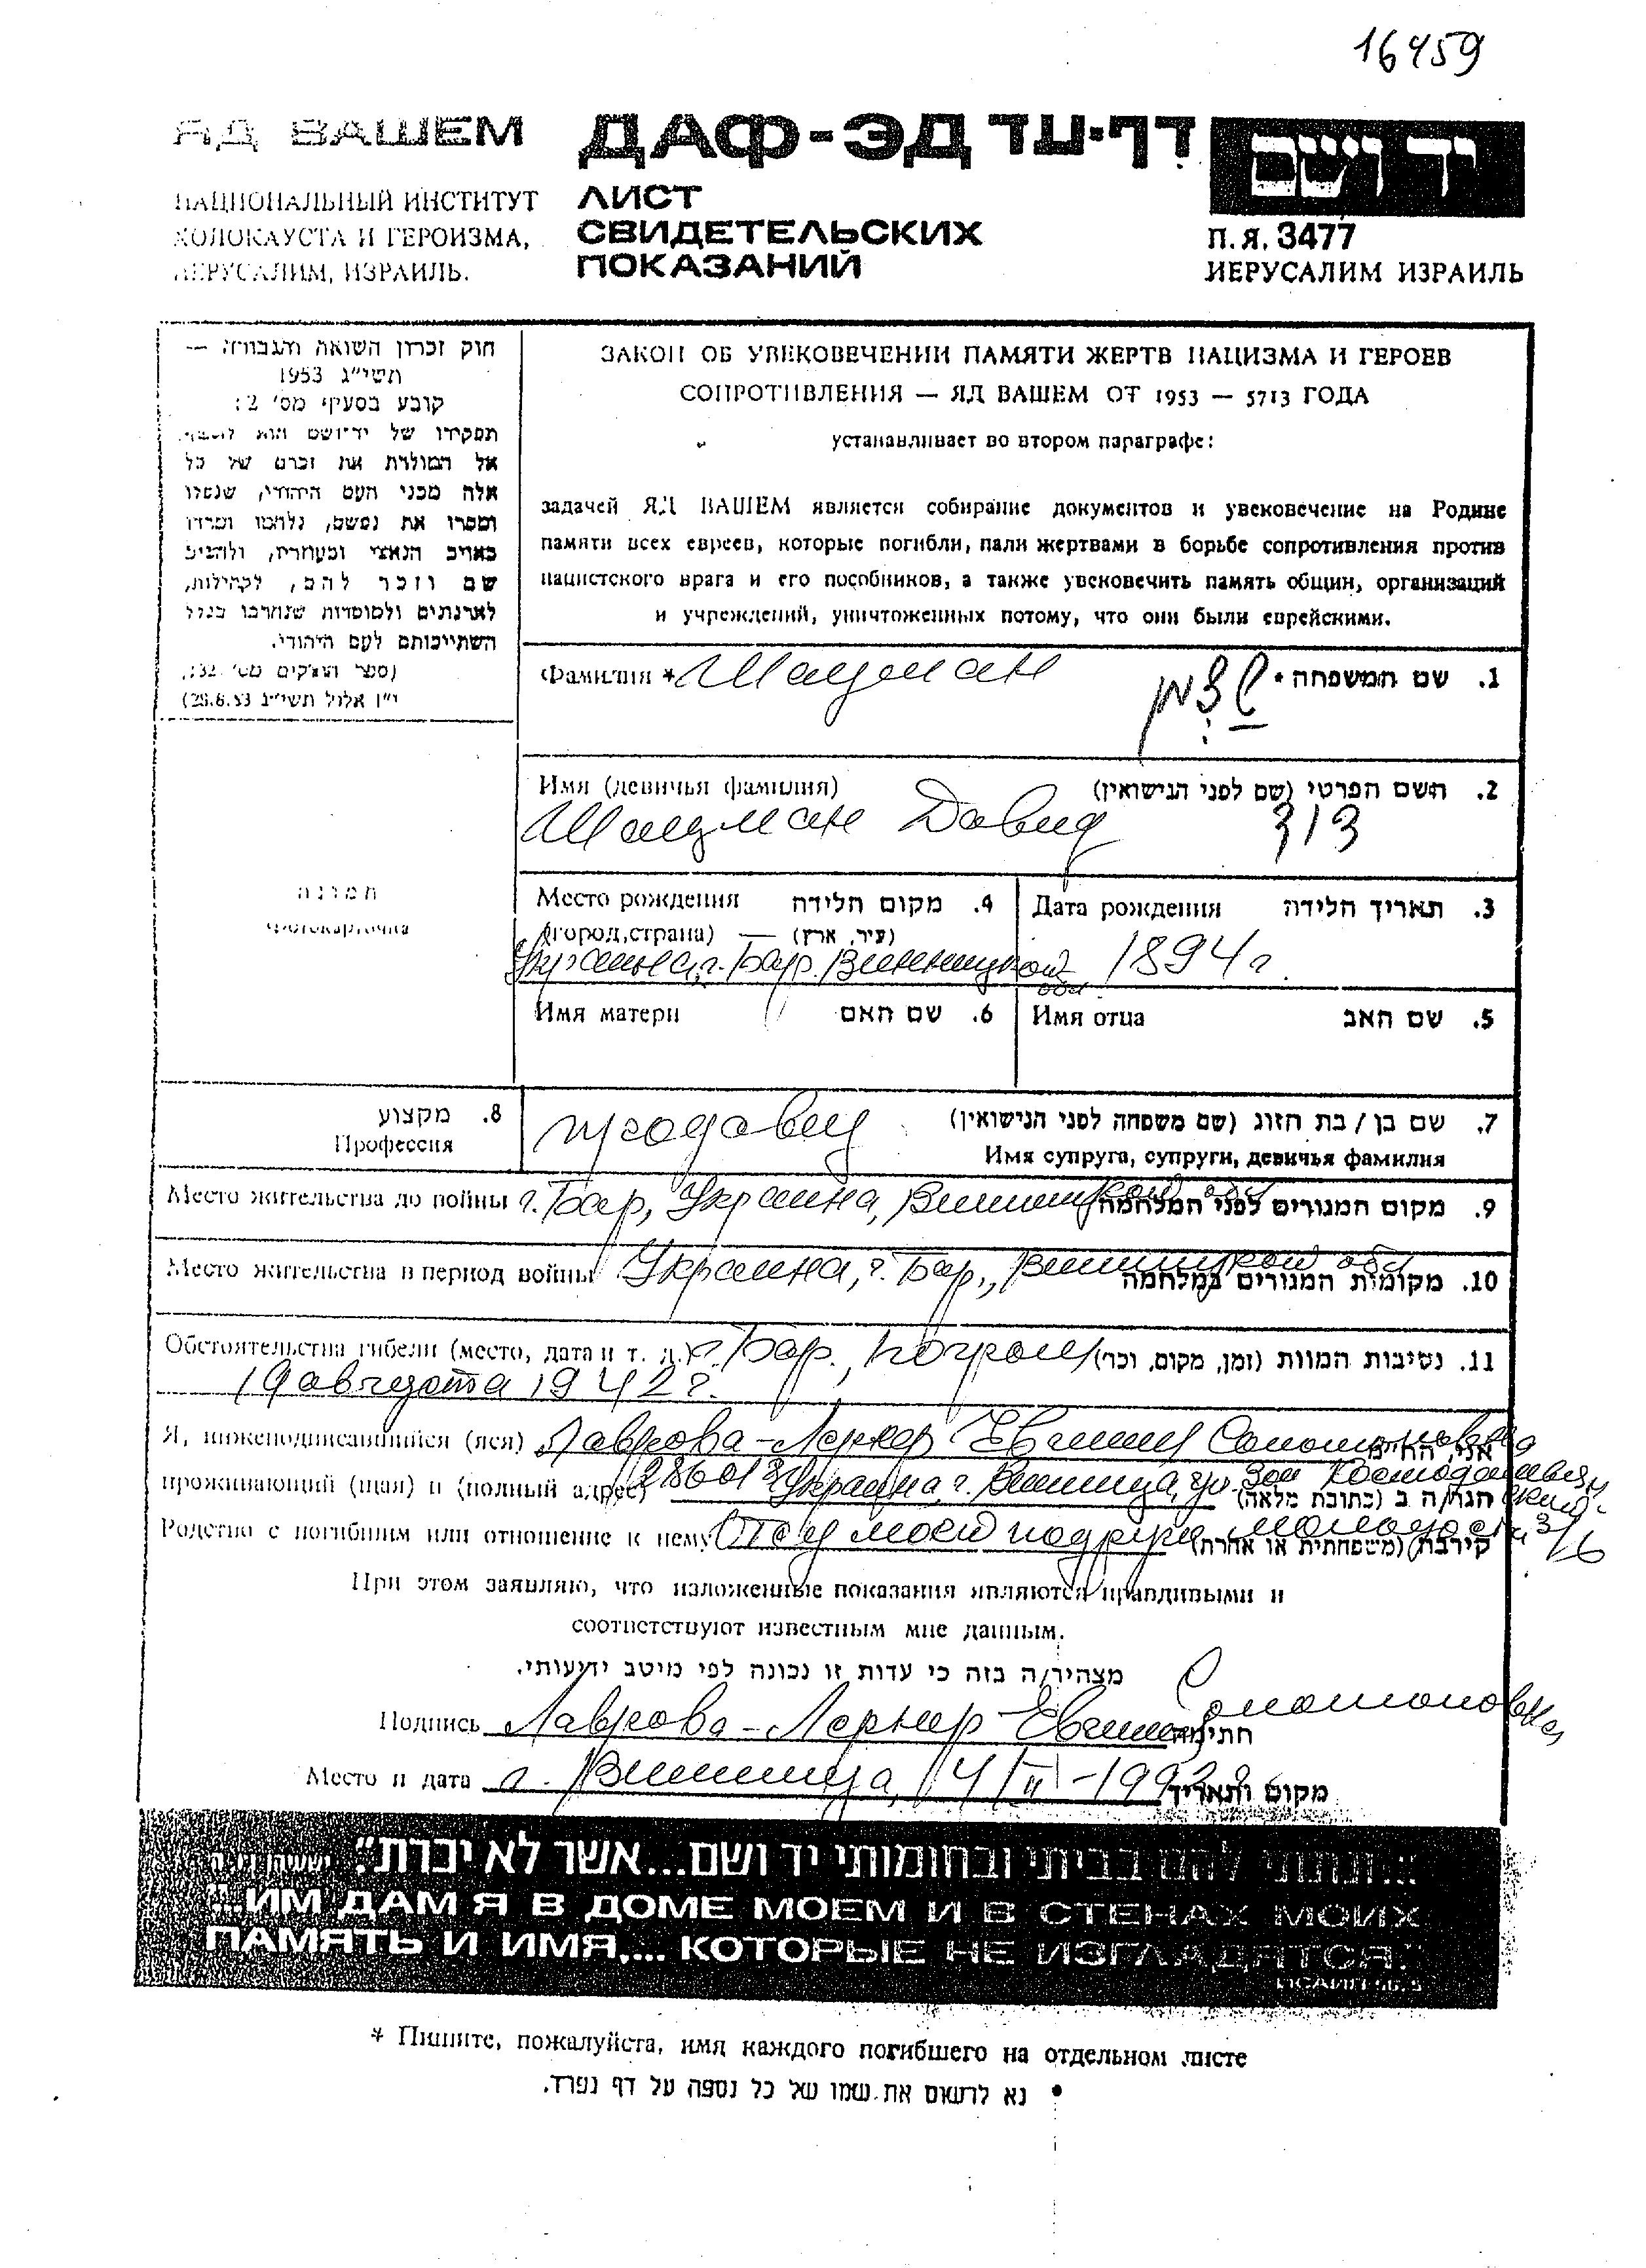 16459
ЯД ВАШЕМ ДАФ-ЭД דף-עד יד ושם
НАЦИОНАЛЬНЫЙ ИНСТИТУТ
ХОЛОКАУСТА И ГЕРОИЗМА,
ИЕРУСАЛИМ, ИЗРАИЛЬ.
ЛИСТ
СВИДЕТЕЛЬСКИХ
ПОКАЗАНИЙ
П.Я. 3477
ИЕРУСАЛИМ ИЗРАИЛЬ
חוק זכרון השואה והגבורה —
תשי״ג 1953
קובע בסעיף מס׳ 2:
תפקידו של יד־ושם הוא לאסוף
אל המולדת את זכרם של כל
אלה מבני העם היהודי, שנפלו
ומסרו את נפשם, נלחמו ומרדו
באויב הנאצי ובעוזריו, ולהציב
שם וזכר להם, לקהילות,
לארגונים ולמוסדות שנחרבו בגלל
השתייכותם לעם היהודי.
(ספר החוקים מס׳ 132,
י״ז אלול תשי״ג 28.8.53)
ЗАКОН ОБ УВЕКОВЕЧЕНИИ ПАМЯТИ ЖЕРТВ НАЦИЗМА И ГЕРОЕВ
СОПРОТИВЛЕНИЯ — ЯД ВАШЕМ ОТ 1953 — 5713 ГОДА
устанавливает во втором параграфе:
задачей ЯД ВАШЕМ является собирание документов и увековечение на Родине
памяти всех евреев, которые погибли, пали жертвами в борьбе сопротивления против
нацистского врага и его пособников, а также увековечить память общин, организаций
и учреждений, уничтоженных потому, что они были еврейскими.
Фамилия * Шацман שצמן 1. שם המשפחה •
Имя (девичья фамилия) 2. השם הפרטי (שם לפני הנישואין)
Шацман Давид דוד
Место рождения 4. מקום הלידה
(город, страна) — (עיר, ארץ)
Украина, г. Бар. Винницкой обл.
Дата рождения 3. תאריך הלידה
1894 г.
Имя матери 6. שם האם
Имя отца 5. שם האב
תמונה
фотокарточка
8. מקצוע
Профессия
продавец
7. שם בן / בת הזוג (שם משפחה לפני הנישואין)
Имя супруга, супруги, девичья фамилия
Место жительства до войны г. Бар, Украина, Винницкой обл 9. מקום המגורים לפני המלחמה
Место жительства в период войны Украина, г. Бар., Винницкой обл 10. מקומות המגורים במלחמה
Обстоятельства гибели (место, дата и т. д.) г. Бар., погром 11. נסיבות המוות (זמן, מקום, וכו׳)
19 августа 1942 г.
Я, нижеподписавшийся (аяся) Лаврова-Лернер Евгения Соломоновна אני, הח״מ
проживающий (щая) в (полный адрес) Украина, г. Винница, ул. Зои Космодемьянской הגר/ה ב (כתובת מלאה)
Родство с погибшим или отношение к нему Отец моей подруги молодости 3/6 קירבה (משפחתית או אחרת)
При этом заявляю, что изложенные показания являются правдивыми и
соответствуют известным мне данным.
מצהיר/ה בזה כי עדות זו נכונה לפי מיטב ידיעותי.
Подпись Лаврова-Лернер Евгения Соломоновна חתימה
Место и дата г. Винница, 14/II-1992 מקום ותאריך
״...ונתתי להם בביתי ובחומותי יד ושם...אשר לא יכרת.״ ישעיהו נ״ו, ה
"...ИМ ДАМ Я В ДОМЕ МОЕМ И В СТЕНАХ МОИХ
ПАМЯТЬ И ИМЯ,... КОТОРЫЕ НЕ ИЗГЛАДЯТСЯ."
* Пишите, пожалуйста, имя каждого погибшего на отдельном листе
• נא לרשום את שמו של כל נספה על דף נפרד.